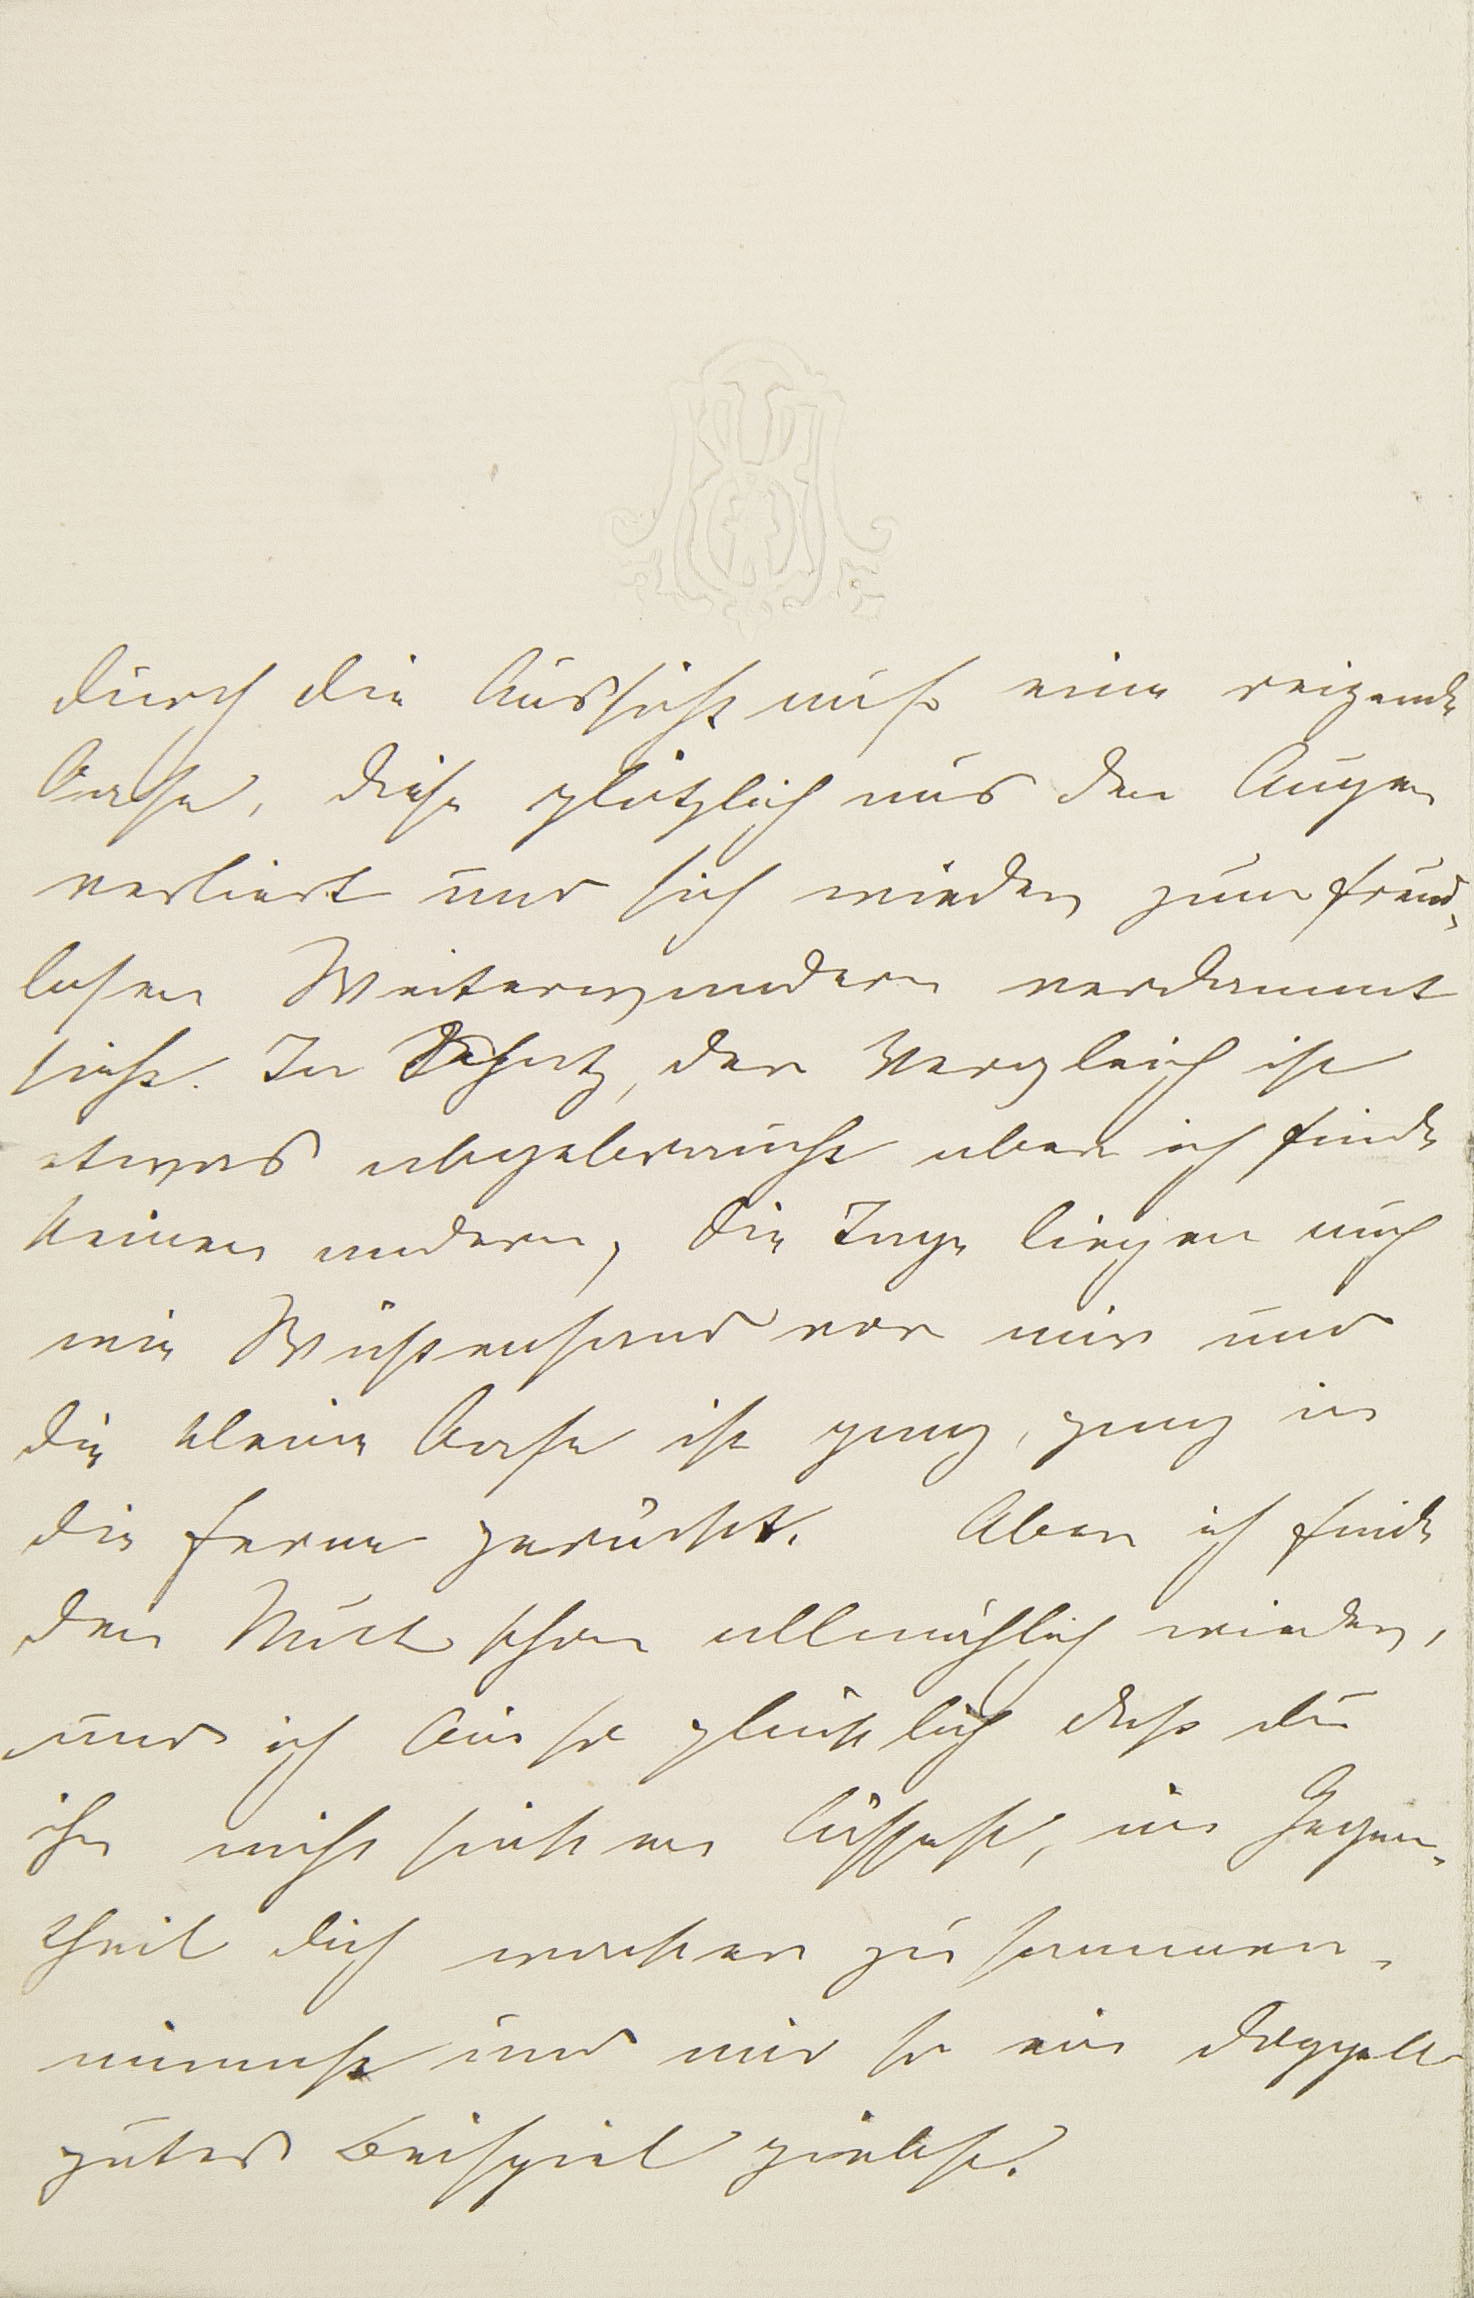 durch die Aussicht auf eine reizende
Oase, diese plötzlich aus den Augen
verliert und sich wieder zum freud-
losen Weiterwandern verdammt
sieht. Ja Schatz, der Vergleich ist
etwas abgebraucht aber ich finde
keinen andern, die Tage liegen auch
wie Wüstensand vor mir und
die kleine Oase ist ganz, ganz in
die Ferne gerückt. Aber ich finde
den Mut schon allmählich wieder,
und ich bin so glücklich daß du
ihn nicht sinken lässest, im Gegen-
theil dich wacker zusammen-
nimmst und mir so ein doppelt
gutes Beispiel giebst.